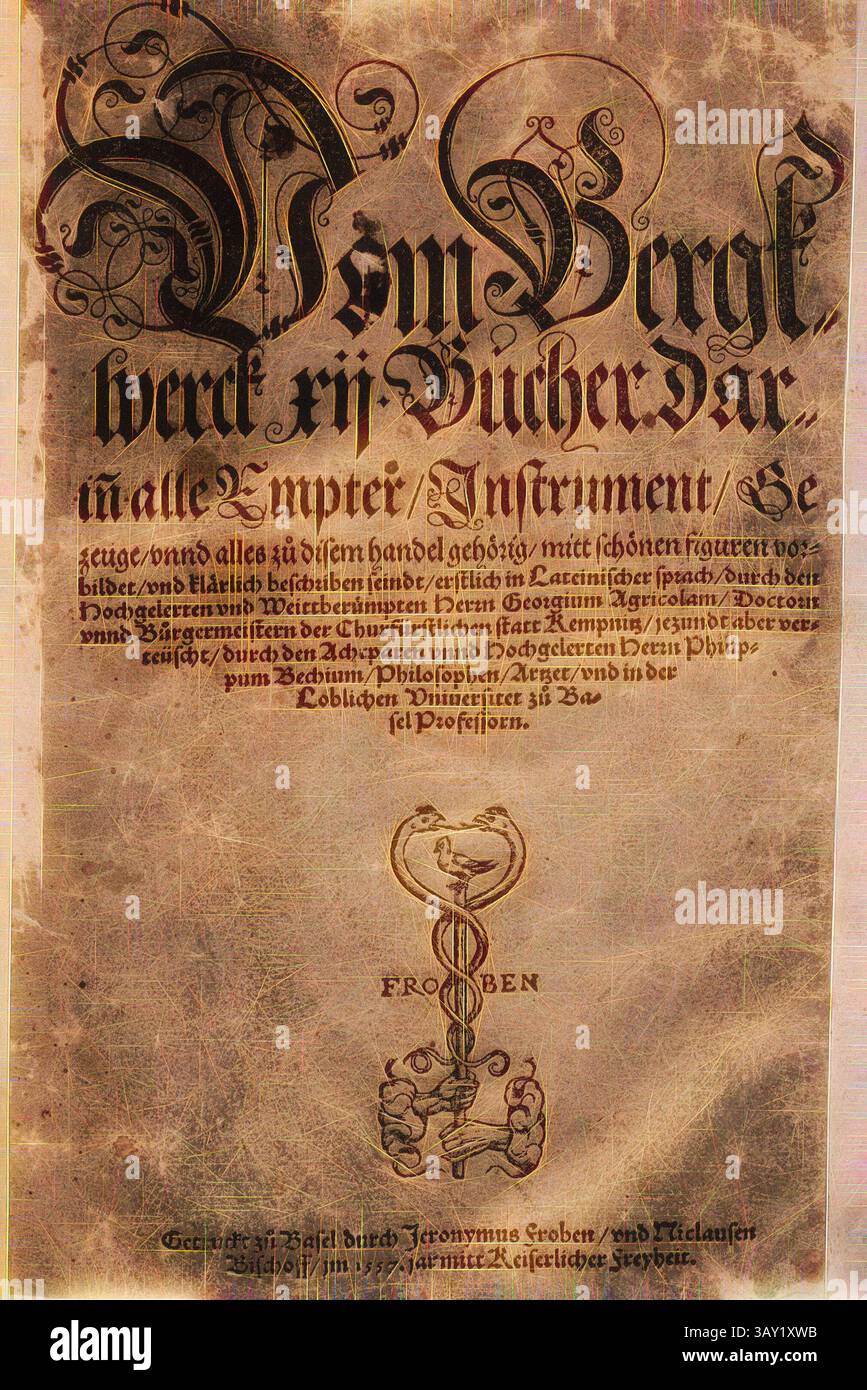 Vom Bergk⸗
werck xij· Bücher Dar⸗
iñ alle Empter / Instrument / Ge
zeuge / vnnd alles zů disem handel gehörig / mitt schönen figuren vor⸗
bildet / vnd klärlich beschriben seindt / erstlich in Lateinischer sprach / durch den
Hochgelerten vnd Weittberůmpten Herrn Georgium Agricolam / Doctorn
vnnd Bůrgermeistern der Churfürstlichen statt Kempnitz / jezundt aber ver⸗
teüscht / durch den Achtparen vnnd Hochgelerten Herrn Philip⸗
pum Bechium / Philosophen / Artzet / vnd in der
Loblichen Vniuersitet zů Ba⸗
sel Professorn.
FRO BEN
Getruckt zů Basel durch Jeronymus Froben / vnd Niclausen
Bischoff / im 1557. jar mitt Keiserlicher Freyheit.
alamy
alamy
alamy
alamy
alamy
Image ID: 3AY1XWB
www.alamy.com